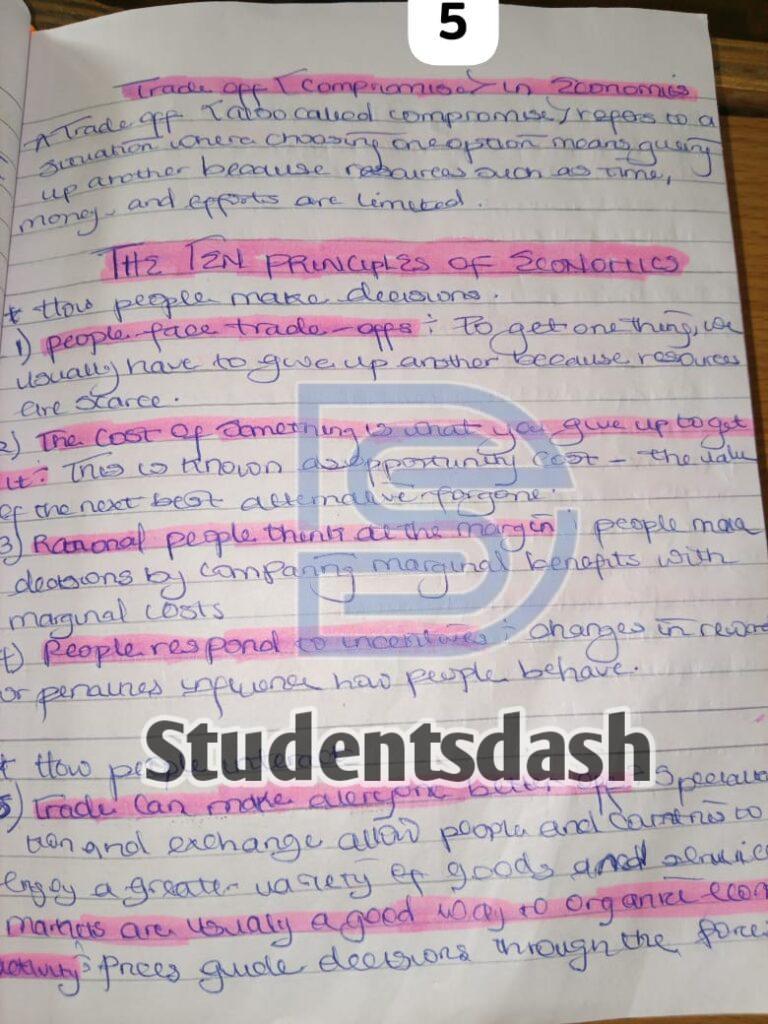 5
Trade off (compromise) in Economics
A Trade off (also called compromise) refers to a
situation where choosing one option means giving
up another because resources such as time,
money, and efforts are limited.
THE TEN PRINCIPLES OF ECONOMICS
* How people make decisions.
1) people face trade-offs: To get one thing, we
usually have to give up another because resources
are scarce.
2) The cost of something is what you give up to get
it: This is known as opportunity cost - the value
of the next best alternative forgone.
3) Rational people think at the margin: people make
decisions by comparing marginal benefits with
marginal costs
4) People respond to incentives: changes in reward
or penalties influence how people behave.
Studentsdash
* How people interact
5) Trade can make everyone better off: Specializa
tion and exchange allow people and countries to
enjoy a greater variety of goods and service
markets are usually a good way to organize econ
activity: Prices guide decisions through the force